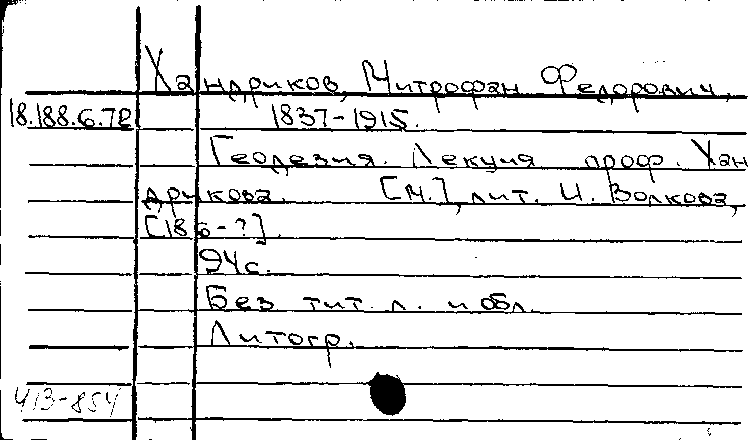 Хандриков, Митрофан Федорович,
18.188.6.72 1837-1915.
Геодезия. Лекция проф. Хан
дрикова. [М.], лит. И. Волкова,
[186-?].
94 с.
Без тит. л. и обл.
Литогр.
413-854